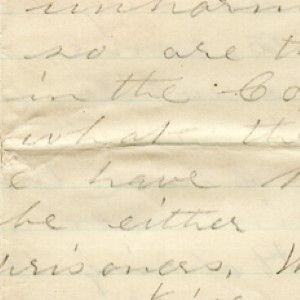 so are
in the Co
what th
have
be either
prisoners,